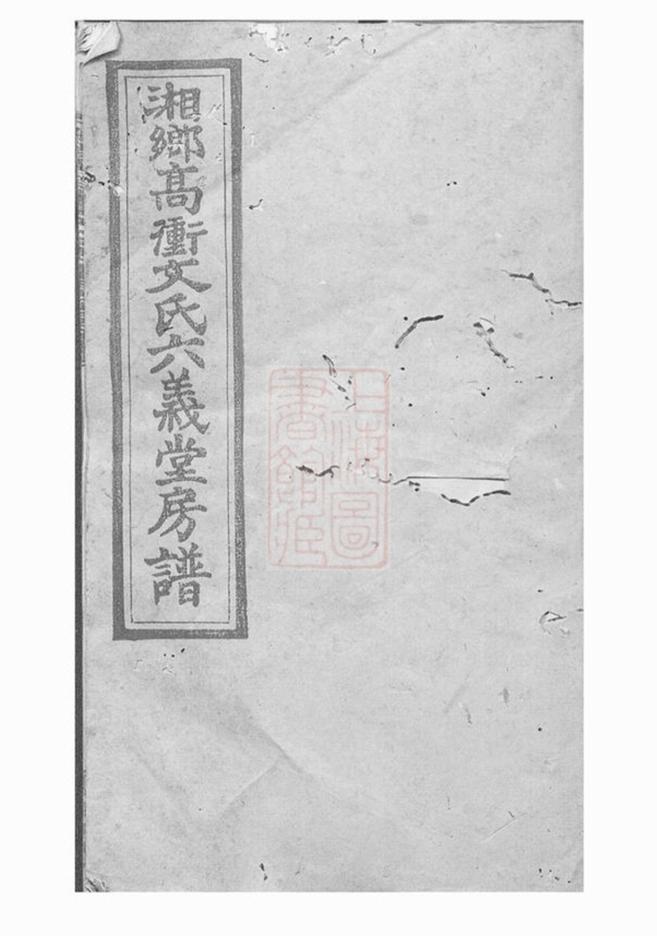 湘鄉高衝文氏六義堂房譜
上海圖
書館藏